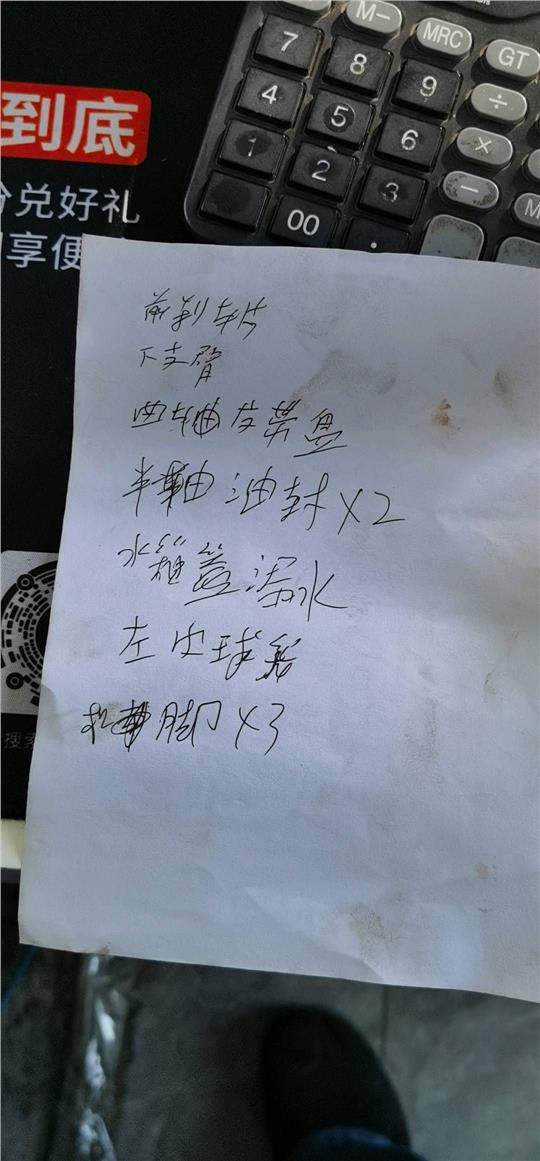 M-
MRC
GT
7
8
9
÷
4
5
6
×
1
2
3
−
00
.
到底
兑好礼
享便
前刹车片
下支臂
曲轴皮带盘
半轴油封X2
水箱盖漏水
左内球笼
脚X3
搜索